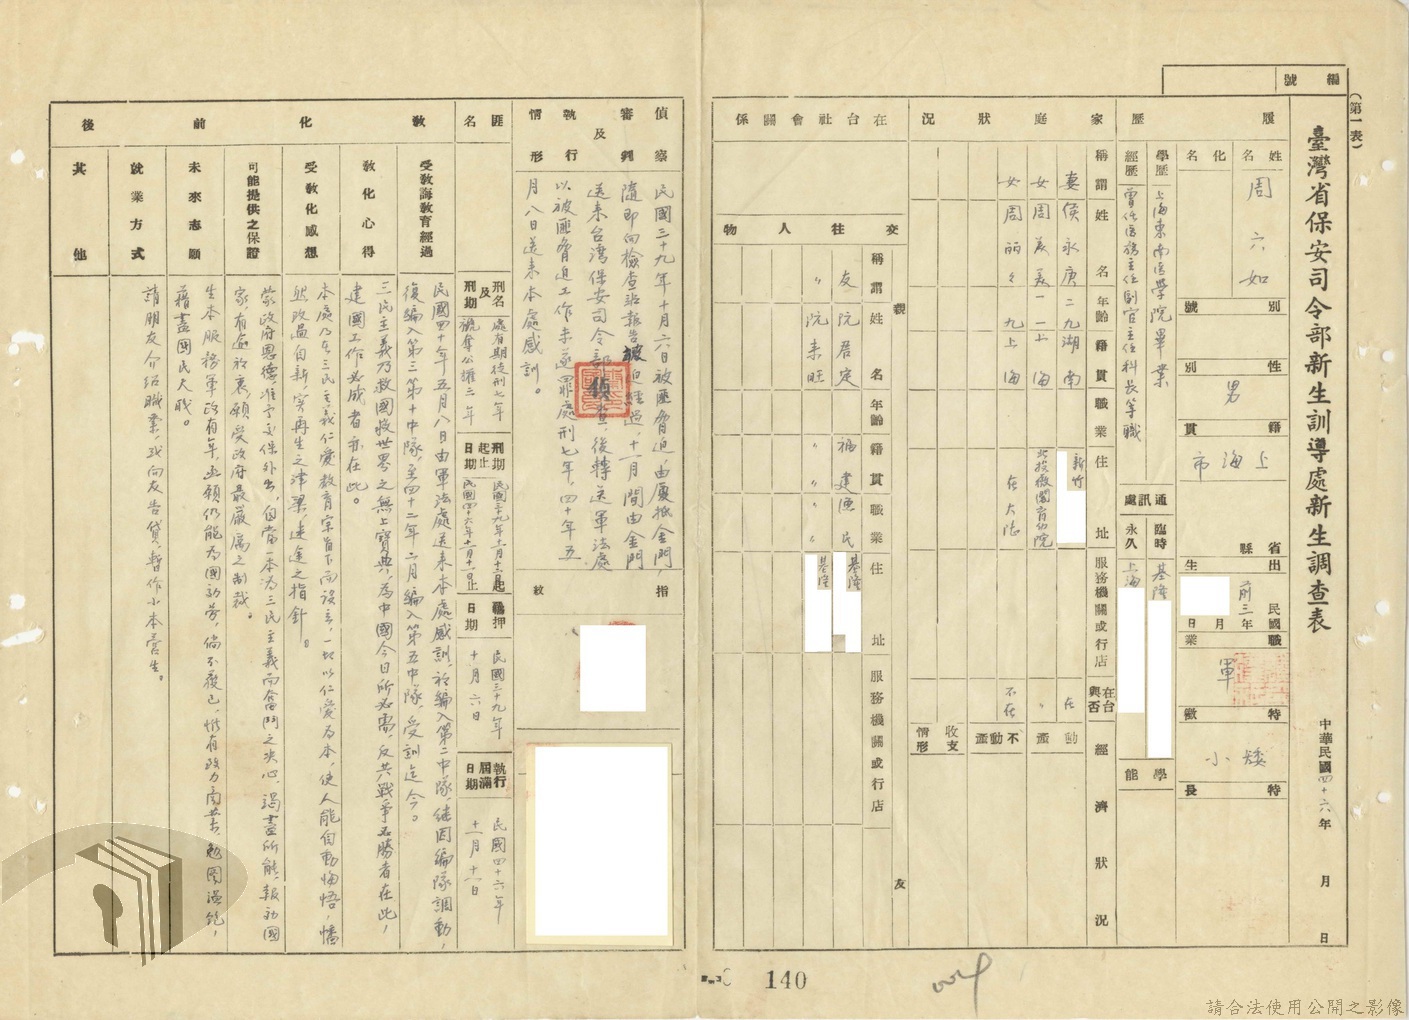 編號
（第一表）
臺灣省保安司令部新生訓導處新生調查表
中華民國四十六年　月　日
履歷
姓名
周六如
化名
別號
性別
男
籍貫
上海市
省縣
出生
民國前三年　月　日
職業
軍
特徵
矮小
特長
學歷
上海東南醫學院畢業
經歷
曾任醫務主任副官主任科長等職
通訊處
臨時
基隆
永久
上海
學能
家庭狀況
稱謂
姓名
年齡
籍貫
職業
住址
服務機關或行店
在台與否
經濟狀況
妻
侯永庚
二九
湖南
新竹
在
女
周美美
一一
上海
北投薇閣育幼院
〃
女
周丽々
九
上海
在大陸
不在
動產
不動產
收支情形
在台社會關係
親友
交往人物
稱謂
姓名
年齡
籍貫
職業
住址
服務機關或行店
友
阮居定
福建
漁民
基隆
〃
阮来旺
〃
〃
〃
基隆
偵察審判及執行情形
民國三十九年十月六日被匪脅迫，由廈抵金門，
隨即向檢查班報告被迫經過，十一月間由金門
送来台灣保安司令部偵查，後轉送軍法處
以被匪脅迫工作未遂罪處刑七年，四十年五
月八日送来本處感訓。
指紋
匪名
刑名及刑期
處有期徒刑七年
褫奪公權二年
刑期起止日期
民國三十九年十一月十二日起
民國四十六年十一月十一日止
羈押日期
民國三十九年
十月六日
執行屆滿日期
民國四十六年
十一月十一日
教化前後
受教誨教育經過
民國四十年五月八日由軍法處送来本處感訓，初編入第二中隊，继因編隊調動，
復編入第三第十中隊，至四十二年二月編入第五中隊，受訓迄今。
教化心得
三民主義乃救國救世界之無上寶典，為中國今日所必需，反共戰爭必勝者在此，
建國工作必成者亦在此。
受教化感想
本處乃在三民主義仁愛教育宗旨下而設立，一切以仁愛為本，使人能自動悔悟，幡
然改過自新，实再生之津梁，迷途之指針。
可能提供之保證
蒙政府恩德，准予交保外出，自當一本為三民主義而奮鬥之决心，竭盡所能，報効國
家，有逾初衷，願受政府最嚴厲之制裁。
未來志願
生本服務軍政有年，此願仍能為國効劳，倘不獲已，
藉盡國民天職。
就業方式
請朋友介绍職業，或向友告貸，暫作小本营生。
其他
140
請合法使用公開之影像